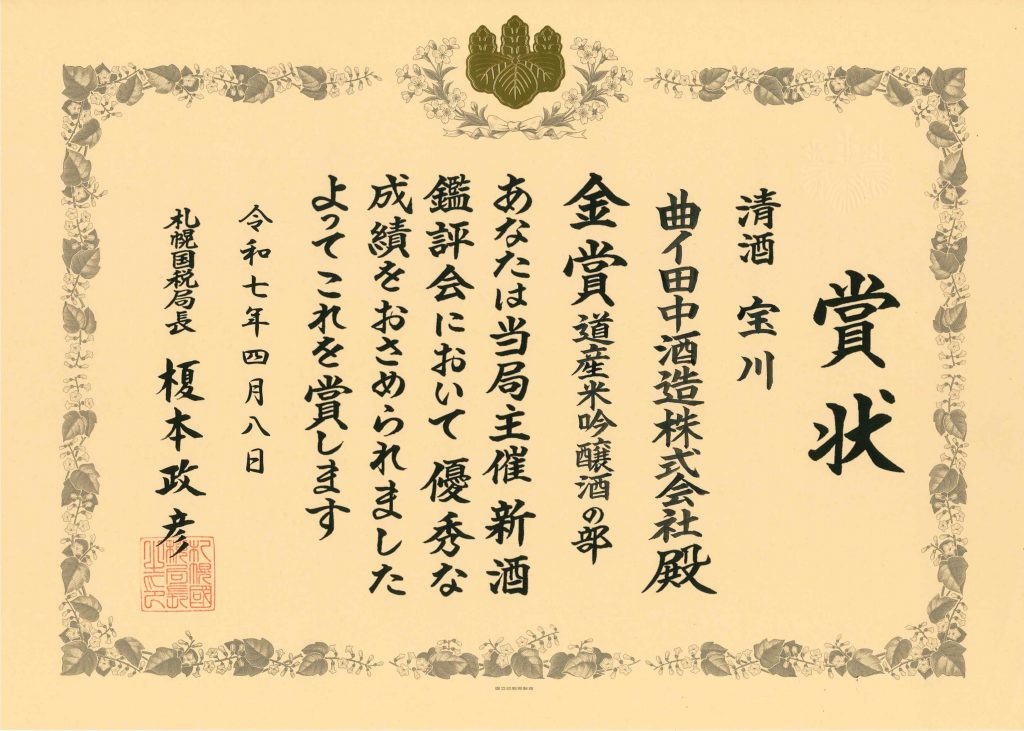 賞状
清酒 宝川
曲イ田中酒造株式会社殿
金賞 道産米吟醸酒の部
あなたは当局主催新酒
鑑評会において優秀な
成績をおさめられました
よってこれを賞します
令和七年四月八日
札幌国税局長 榎本政彦
札幌國税局長之印
国立印刷局製造